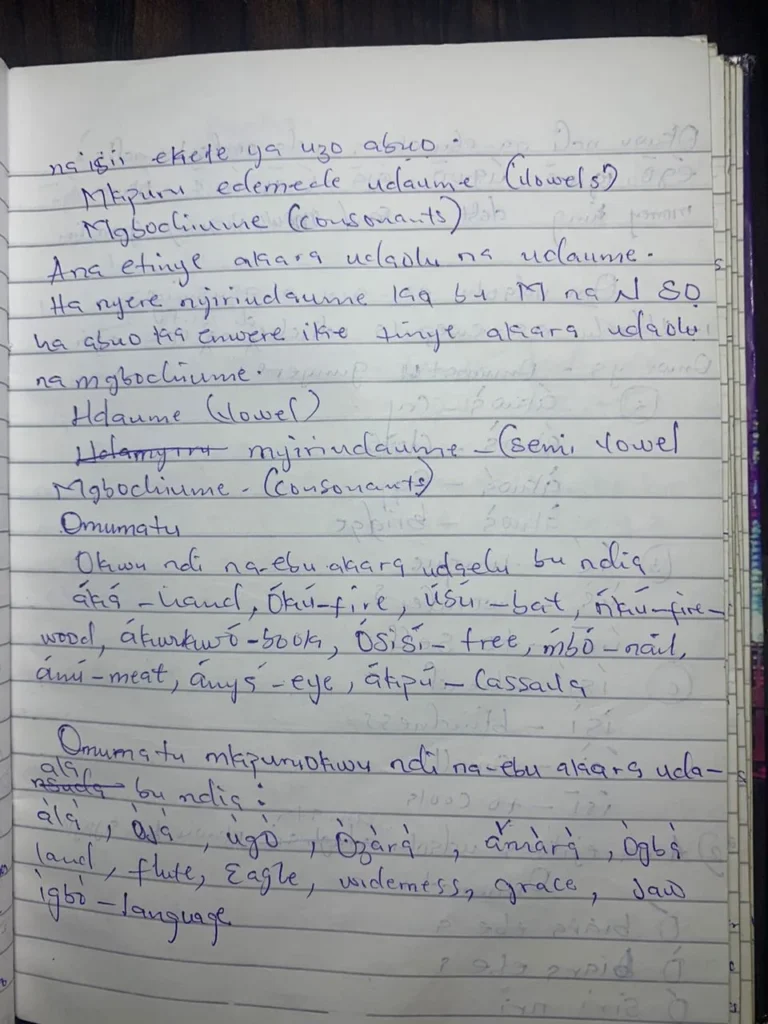 na isii ekete ya uzo abuo.
Mkpuru edemede udaume (vowels)
Mgbochiume (consonants)
Ana etinye akara udaolu na udaume.
Ha nyere nyiriudaume ka bu M na N so
ha abuo ka enwere ike tinye akara udaolu
na mgbochiume.
Udaume (vowel)
myiriudaume - (semi vowel
Mgbochiume - (consonants)
Omumatu
Okwu ndi na-ebu akara udaelu bu ndia
áká - hand, Ókú - fire, Úsú - bat, ńkú - fire-
wood, ákurkwó - book, Ósísí - tree, ḿbó - nail,
ánú - meat, ányá - eye, ákpú - Cassava
Omumatu mkpuruokwu ndi na-ebu akara uda-
ala bu ndia:
àlà, òjà, ùgò, Òzàrà, àmàrà, Ògbà
land, flute, Eagle, widerness, grace, Jaw
ìgbò - language